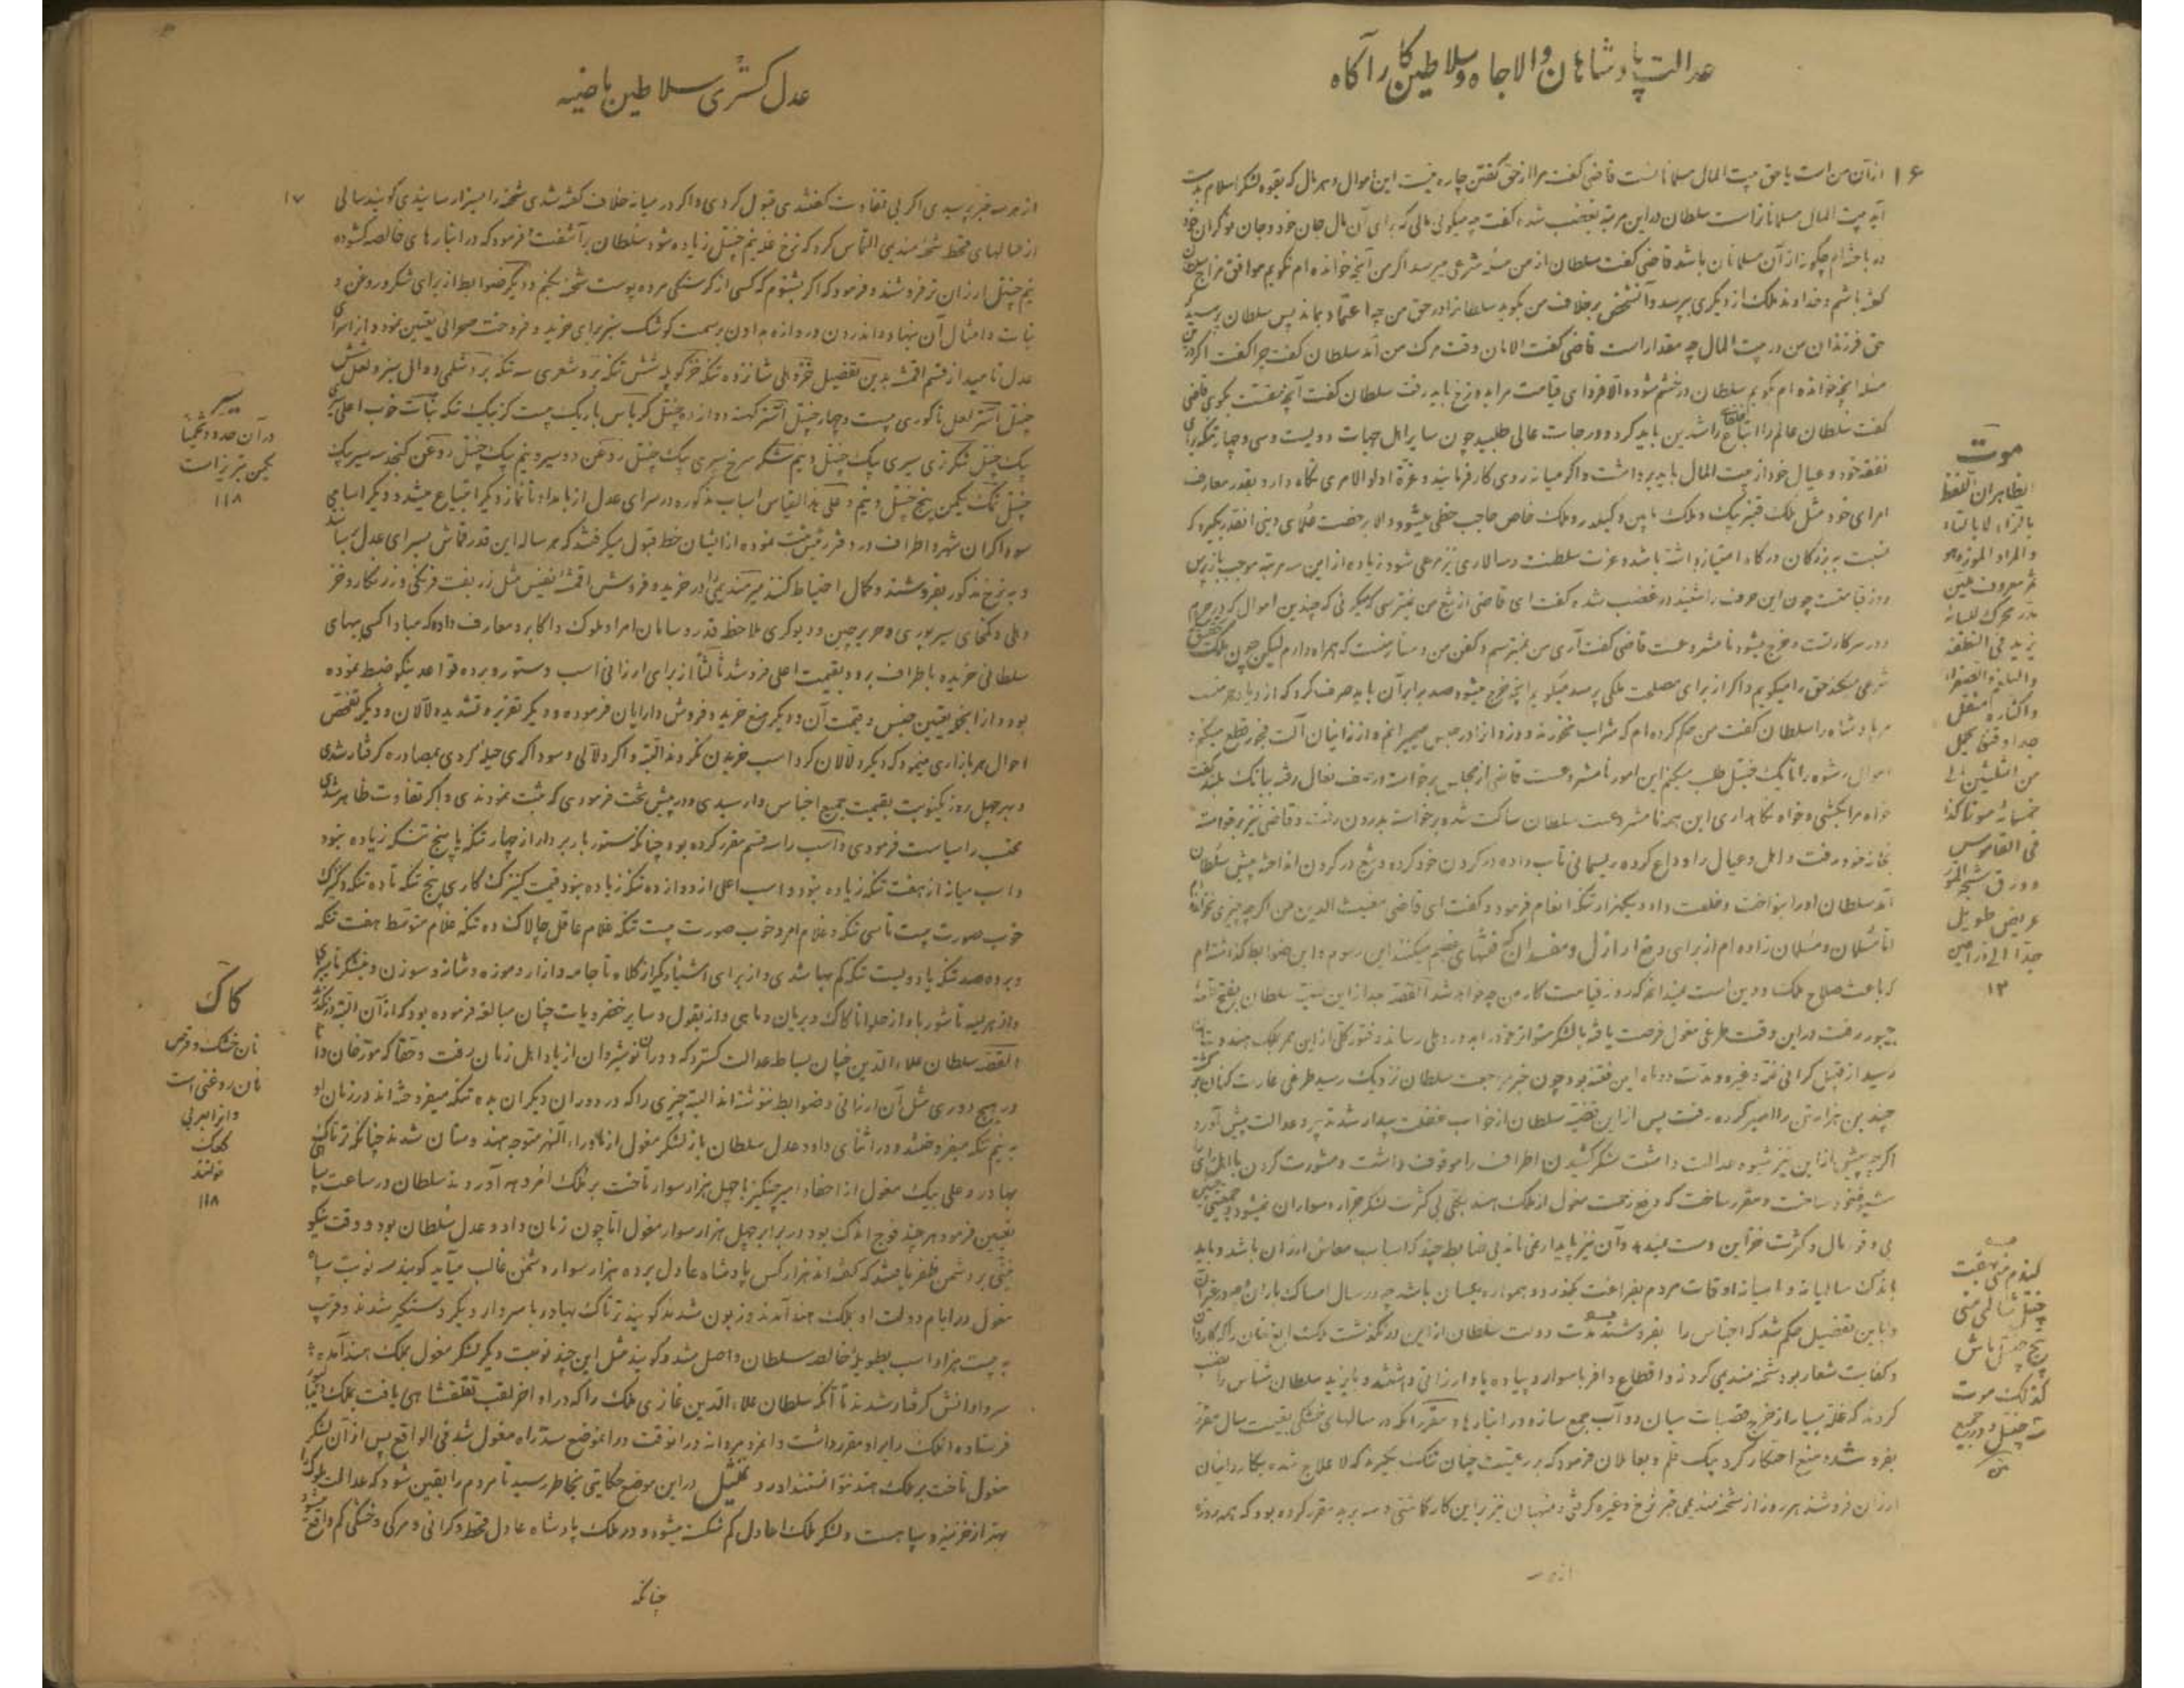 عدالت پادشاهان والا جاه و سلاطین کار آگاه
۱۶
از آن من است یا حق بیت المال مسلمانانست قاضی گفت مرا از حق گفتن چاره نیست این اموال و هر مال که بقوه لشکر اسلام بدست
آید بیت المال مسلمانانراست سلطان در این مرتبه بغضب شده گفت چه میگوئی مالی که برای آن مال جان خود و جان نوکران خود
در باخته ام چگونه از آن مسلمانان باشد قاضی گفت سلطان از من مسئله شرعی میپرسد اگر من آنچه خوانده ام نگویم موافق مزاج سلطان
گفته باشم و خداوند ملک از دیگری بپرسد و آنشخص برخلاف من بگوید سلطانرا در حق من چه اعتماد بماند پس سلطان پرسید
حق فرزندان من در بیت المال چه مقدار است قاضی گفت الامان وقت مرگ من آمد سلطان گفت چرا گفت اگر در این
مسئله آنچه خوانده ام بگویم سلطان در خشم شود و الا فردای قیامت مرا بدوزخ باید رفت سلطان گفت آنچه حقست بگوی قاضی
گفت سلطان عالم را اتباع خلفای راشدین باید کرد و درجات عالی طلبید چون سایر اهل جهاد دویست و سی و چهار تنکه برای
نفقه خود و عیال خود از بیت المال باید برداشت و اگر میانه روی کار فرمایند و عزة اولوالامری نگاه دارد بقدر معارف
امرای خود مثل ملک قیزبیک و ملک نایب و کیلدر و ملک خاص حاجب حظی میشود و الا برخصت علمای دینی آنقدر بگیرد که
نسبت به بزرگان درگاه امتیاز داشته باشد و عزت سلطنت و سالاری نیز مرعی شود زیاده از این سه مرتبه موجب بازپرس
روز قیامتست چون این حرف را شنید در غضب شده گفت ای قاضی از تیغ من نمیترسی که میگوئی که چندین اموال که در حرم
و در سرکارتست و خرج میشود نامشروعست قاضی گفت آری من نمیترسم و کفن من دستار منست که همراه دارم لیکن چون ملک تحقیق
شرعی میکند حق را میگویم و اگر از برای مصلحت ملکی پرسد میگویم آنچه خرج میشود صد برابر آن باید صرف کرد که ازدیاد حرمت
مر پادشاه را سلطان گفت من حکم کرده ام که شراب نخورند و زناه را در حبس میمیرانم و از زانیان آلت فجور قطع میکنم و
اموال رشوه را تا یک جیتل طلب میکنم این امور نامشروعست قاضی از مجلس برخاسته در صف نعال رفته ببانگ بلند گفت
خواه مرا بکشی و خواه نگاهداری این همه نامشروعست سلطان ساکت شده برخاسته بدرون رفت و قاضی نیز برخاسته
بخانه خود رفت و اهل و عیال را وداع کرده ریسمانی تاب داده در گردن خود کرده و تیغ در گردن انداخته پیش سلطان
آمد سلطان او را بنواخت و خلعت داد و یکهزار تنکه انعام فرمود و گفت ای قاضی مغیث الدین من اگر چه چیزی نخوانده ام
اما مسلمان و مسلمان زاده ام از برای دفع اراذل و مفسدان که فتنهای عظیم میکنند این رسوم و این ضوابط گذاشته ام
که باعث صلاح ملک و دین است نمیدانم که روز قیامت کار من چه خواهد شد القصه بعد از این سلطان بفتح قلعه
چیتور رفت در این وقت طرغی مغول فرصت یافته با لشکر متواتر خود را بدور دهلی رساند و فتور کلی از این ممر بملک هند
رسید از قبیل گرانی غله و غیره و مدت دو ماه این فتنه بود چون خبر مراجعت سلطان نزدیک رسید طرغی غارت کنان برگشته
چندین هزار تن را اسیر کرده رفت پس از این قضیه سلطان از خواب غفلت بیدار شده پرده عدالت پیش آورد
اگر چه پیش از این نیز شیوه عدالت داشت لشکر کشیدن اطراف را موقوف داشت و مشورت کردن با اهل رای
شیوه خود ساخت و مقرر ساخت که دفع زحمت مغول از ملک هند بیکی بی کثرت لشکر جرار و سواران نمیشود و جمعیتی چنین
بی وفور مال و کثرت خزاین دست ندهد و آن نیز پایدار نمی ماند بی ضابطه چند که اسباب معاش ارزان باشد و باید
باندک سالیانه و ماهیانه اوقات مردم بفراغت بگذرد و همواره یکسان باشد چه در سال امساک باران و چه در غیر آن
و باین تفصیل حکم شد که اجناس را بفروشند مدت دولت سلطان از این در نگذشت ملک الغ خان را که کاردان
و کفایت شعار بود شحنه مندیمی کردند و اقطاع وافر با سوار و پیاده باو ارزانی داشتند و بایزید سلطان شناس را نایب
کردند که غله بسیار از خرج قصبات میان دوآب جمع سازد و در انبارها و مقرر آنکه در سالهای خشکی بقیمت سال مقرر
بفروشند و منع احتکار کرد یک قلم و بعاملان فرمود که بر رعیت چنان تنگ بگیرند که لاعلاج شده بکاروانیان
ارزان فروشند هر روز از شحنه مندیمی خبر نرخ و غیره گرفتی و منهیان نیز بر این کار گماشتی و سه برید مقرر کرده بود که همه روزه
از هر سه
موت
الظاهر ان تلفظ
بالزاء لا بالتاء
والمراد الموز وهو
ثمر معروف ملین
مدر محرک للباءة
یزید فی النطفة
والبلغم والصفراء
واکثاره مثقل
جدا وقنو یحمل
من الثلثین الی
خمسمائة موزة کذا
فی القاموس
وورق شجرة الموز
عریض طویل
جدا الی ذراعین
۱۲
گندم منی هفت
جیتل شالی منی
پنج جیتل ماش
کذلک موت
سه جیتل و در جمیع
عدل گستری سلاطین ماضیه
۱۷
از هر سه خبر پرسیدی اگر بی تفاوت گفتندی قبول کردی و اگر در میانه خلاف گفته شدی شحنه را بسزا رسانیدی گویند سالی
از سالهای قحط شحنه مندیمی التماس کرد که نرخ غله نیم جیتل زیاده شود سلطان برآشفت و فرمود که در انبارهای خالصه گشوده
نیم جیتل ارزان تر فروشند و فرمود که اگر بشنوم که کسی از گرسنگی مرده پوست شحنه بکنم و دیگر ضوابط از برای شکر و روغن و
نبات و امثال آن بنهاد و اندرون دروازه بداون بسمت کوشک سبز برای خرید و فروخت صحرائی تعیین نمود و آنرا سرای
عدل نامید از قسم اقمشه بدین تفصیل خز دهلی شانزده تنکه خز کوپله شش تنکه برد شعری سه تنکه برد شلمی ده الی سبز و لعل شش
جیتل آستر لعل ناگوری بیست و چهار جیتل آستر کهنه دوازده جیتل کرباس باریک بیست گز بیک تنکه نبات خوب اعلی سیری
یک جیتل شکر تری سیری یک جیتل و نیم شکر سرخ سیری یک جیتل روغن دو سیر و نیم یک جیتل روغن کنجد سه سیر یک
جیتل نمک یکمن پنج جیتل و نیم و علی هذا القیاس اسباب مذکوره در سرای عدل از بامداد تا نماز دیگر ابتیاع میشد و دیگر اسامی
سوداگران شهر و اطراف در دفتر رئیس ثبت نموده از ایشان خط قبول میگرفتند که هر ساله این قدر قماش بسرای عدل رسانند
و بنرخ مذکور بفروشند و کمال احتیاط کنند میر مندیمی را در خرید و فروش اقمشه نفیس مثل زربفت فرنگی و زرنگار و خز
دهلی و کمخای سیر پوری و حریر چین و دیوگری ملاحظه قدر و سامان امرا و ملوک و اکابر و معارف داده که مبادا کسی ببهای
سلطانی خریده باطراف برد و بقیمت اعلی فروشد ثالثا از برای ارزانی اسب و ستور و برده قواعد نیکو ضبط نموده
بود و از آنجمله تعیین جنس و قیمت آن و دیگر منع خرید و فروش دارایان فرموده و دیگر تعزیر و تشدید دلالان و دیگر تفحص
احوال هر بازاری مینمود که دیگر دلالان گرد اسب خریدن نگردند البته و اگر دلالی و سوداگری حیله کردی بمصادره گرفتار شدی
و بهر چهل روز یکنوبت بقیمت جمیع اجناس وارسیدی و در پیش تخت فرمودی که ثبت نمودندی و اگر تفاوت ظاهر شدی
محتسب را سیاست فرمودی و اسب را سه قسم مقرر کرده بود چنانکه ستور باربردار از چهار تنکه یا پنج تنکه زیاده نبود
و اسب میانه از هفت تنکه زیاده نبود و اسب اعلی از دوازده تنکه زیاده نبود قیمت کنیزک کاری پنج تنکه تا ده تنکه و کنیزک
خوب صورت بیست تا سی تنکه و غلام امرد خوب صورت بیست تنکه غلام عاقل چالاک ده تنکه غلام متوسط هفت تنکه
و برده صد تنکه یا دویست تنکه کم بها شدی و از برای اشیاء دیگر از کلاه تا جامه و ازار و موزه و شانه و سوزن و نیشکر تا سبزی
و از هریسه تا شوربا و از حلوا تا کاک و بریان و ماهی و از بقول و سایر خضرویات چنان مبالغه فرموده بود که از آن البته درنگذرد
القصه سلطان علاء الدین چنان بساط عدالت گسترد که دوران نوشیروان از یاد اهل زمان رفت و حقا که مورخان دانا
در هیچ دوری مثل آن ارزانی و ضوابط ننوشته اند البته چیزی را که در دوران دیگران بده تنکه میفروخته اند در زمان او
به نیم تنکه میفروختند و در اثنای داد و عدل سلطان باز لشکر مغول از ماوراء النهر متوجه هندوستان شدند چنانکه ترتاک
بهادر و علی بیک مغول از احفاد امیر چنگیز با چهل هزار سوار تاخت بر ملک امروهه آوردند سلطان در ساعت سپاهی
تعیین فرمود هر چند فوج اندک بود در برابر چهل هزار سوار مغول اما چون زمان داد و عدل سلطان بود و وقت نیکو
نیتی بر دشمن ظفر یافتند که گفته اند هزار کس پادشاه عادل بر ده هزار سوار دشمن غالب میآید گویند سه نوبت سپاه
مغول در ایام دولت او بملک هند آمدند و زبون شدند گویند ترتاک بهادر با سردار دیگر دستگیر شدند و قریب
به بیست هزار اسب بطویله خالصه سلطان داخل شد و گویند مثل این چند نوبت دیگر لشکر مغول بملک هند آمده
سردارانش گرفتار شدند تا آنکه سلطان علاء الدین غازی ملک را که در اواخر لقب تغلقشاهی یافت بملک
فرستاده آنملک را باو مقرر داشت و آنمرد مردانه در آنوقت در آنموضع سد راه مغول شد فی الواقع پس از آن لشکر
مغول تاخت بر ملک هند نتوانستند آورد تمثیل در این موضع حکایتی بخاطر رسید تا مردم را یقین شود که عدالت ملوک را
بهتر از خزینه و سپاهست و لشکر ملک اعادل کم شکست میشود و در ملک پادشاه عادل قحط و گرانی و مرگی و خشکی کم واقع میشود
چنانکه
سیر
در آن حدود تخمینا
یکمن تبریز است
۱۱۸
کاک
نان خشک و قرص
نان روغنی است
و آنرا بعربی
کعک
نوشتند
۱۱۸